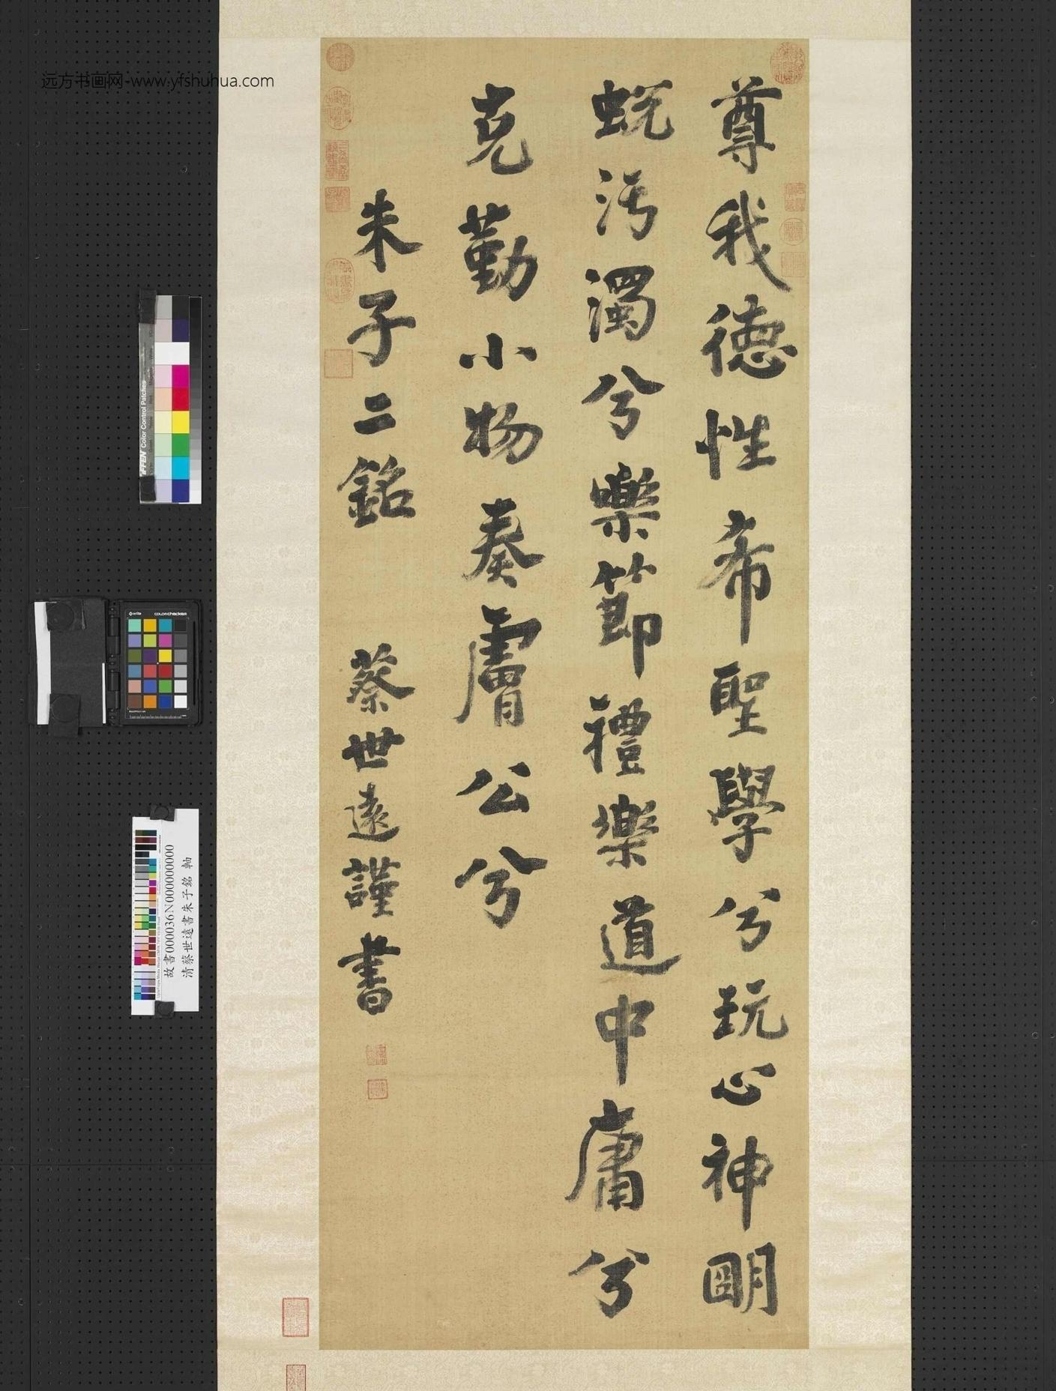 尊我德性希聖學兮玩心神明
蛻汚濁兮樂節禮樂道中庸兮
克勤小物奏膚公兮
朱子二銘
蔡世遠謹書
远方书画网-www.yfshuhua.com
故書000036N000000000
清蔡世遠書朱子銘 軸